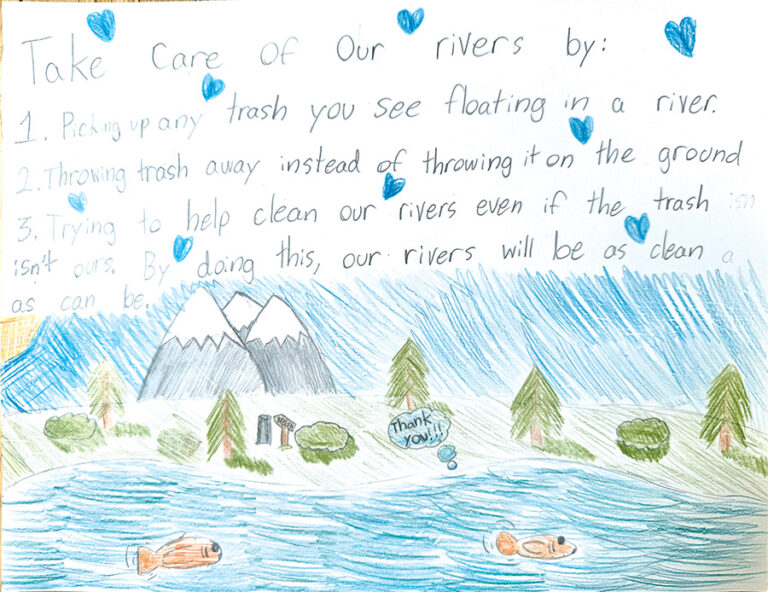 Take care of our rivers by:
1. Picking up any trash you see floating in a river.
2. Throwing trash away instead of throwing it on the ground
3. Trying to help clean our rivers even if the trash isn
isn't ours. By doing this, our rivers will be as clean a
as can be.
Thank
you!!!